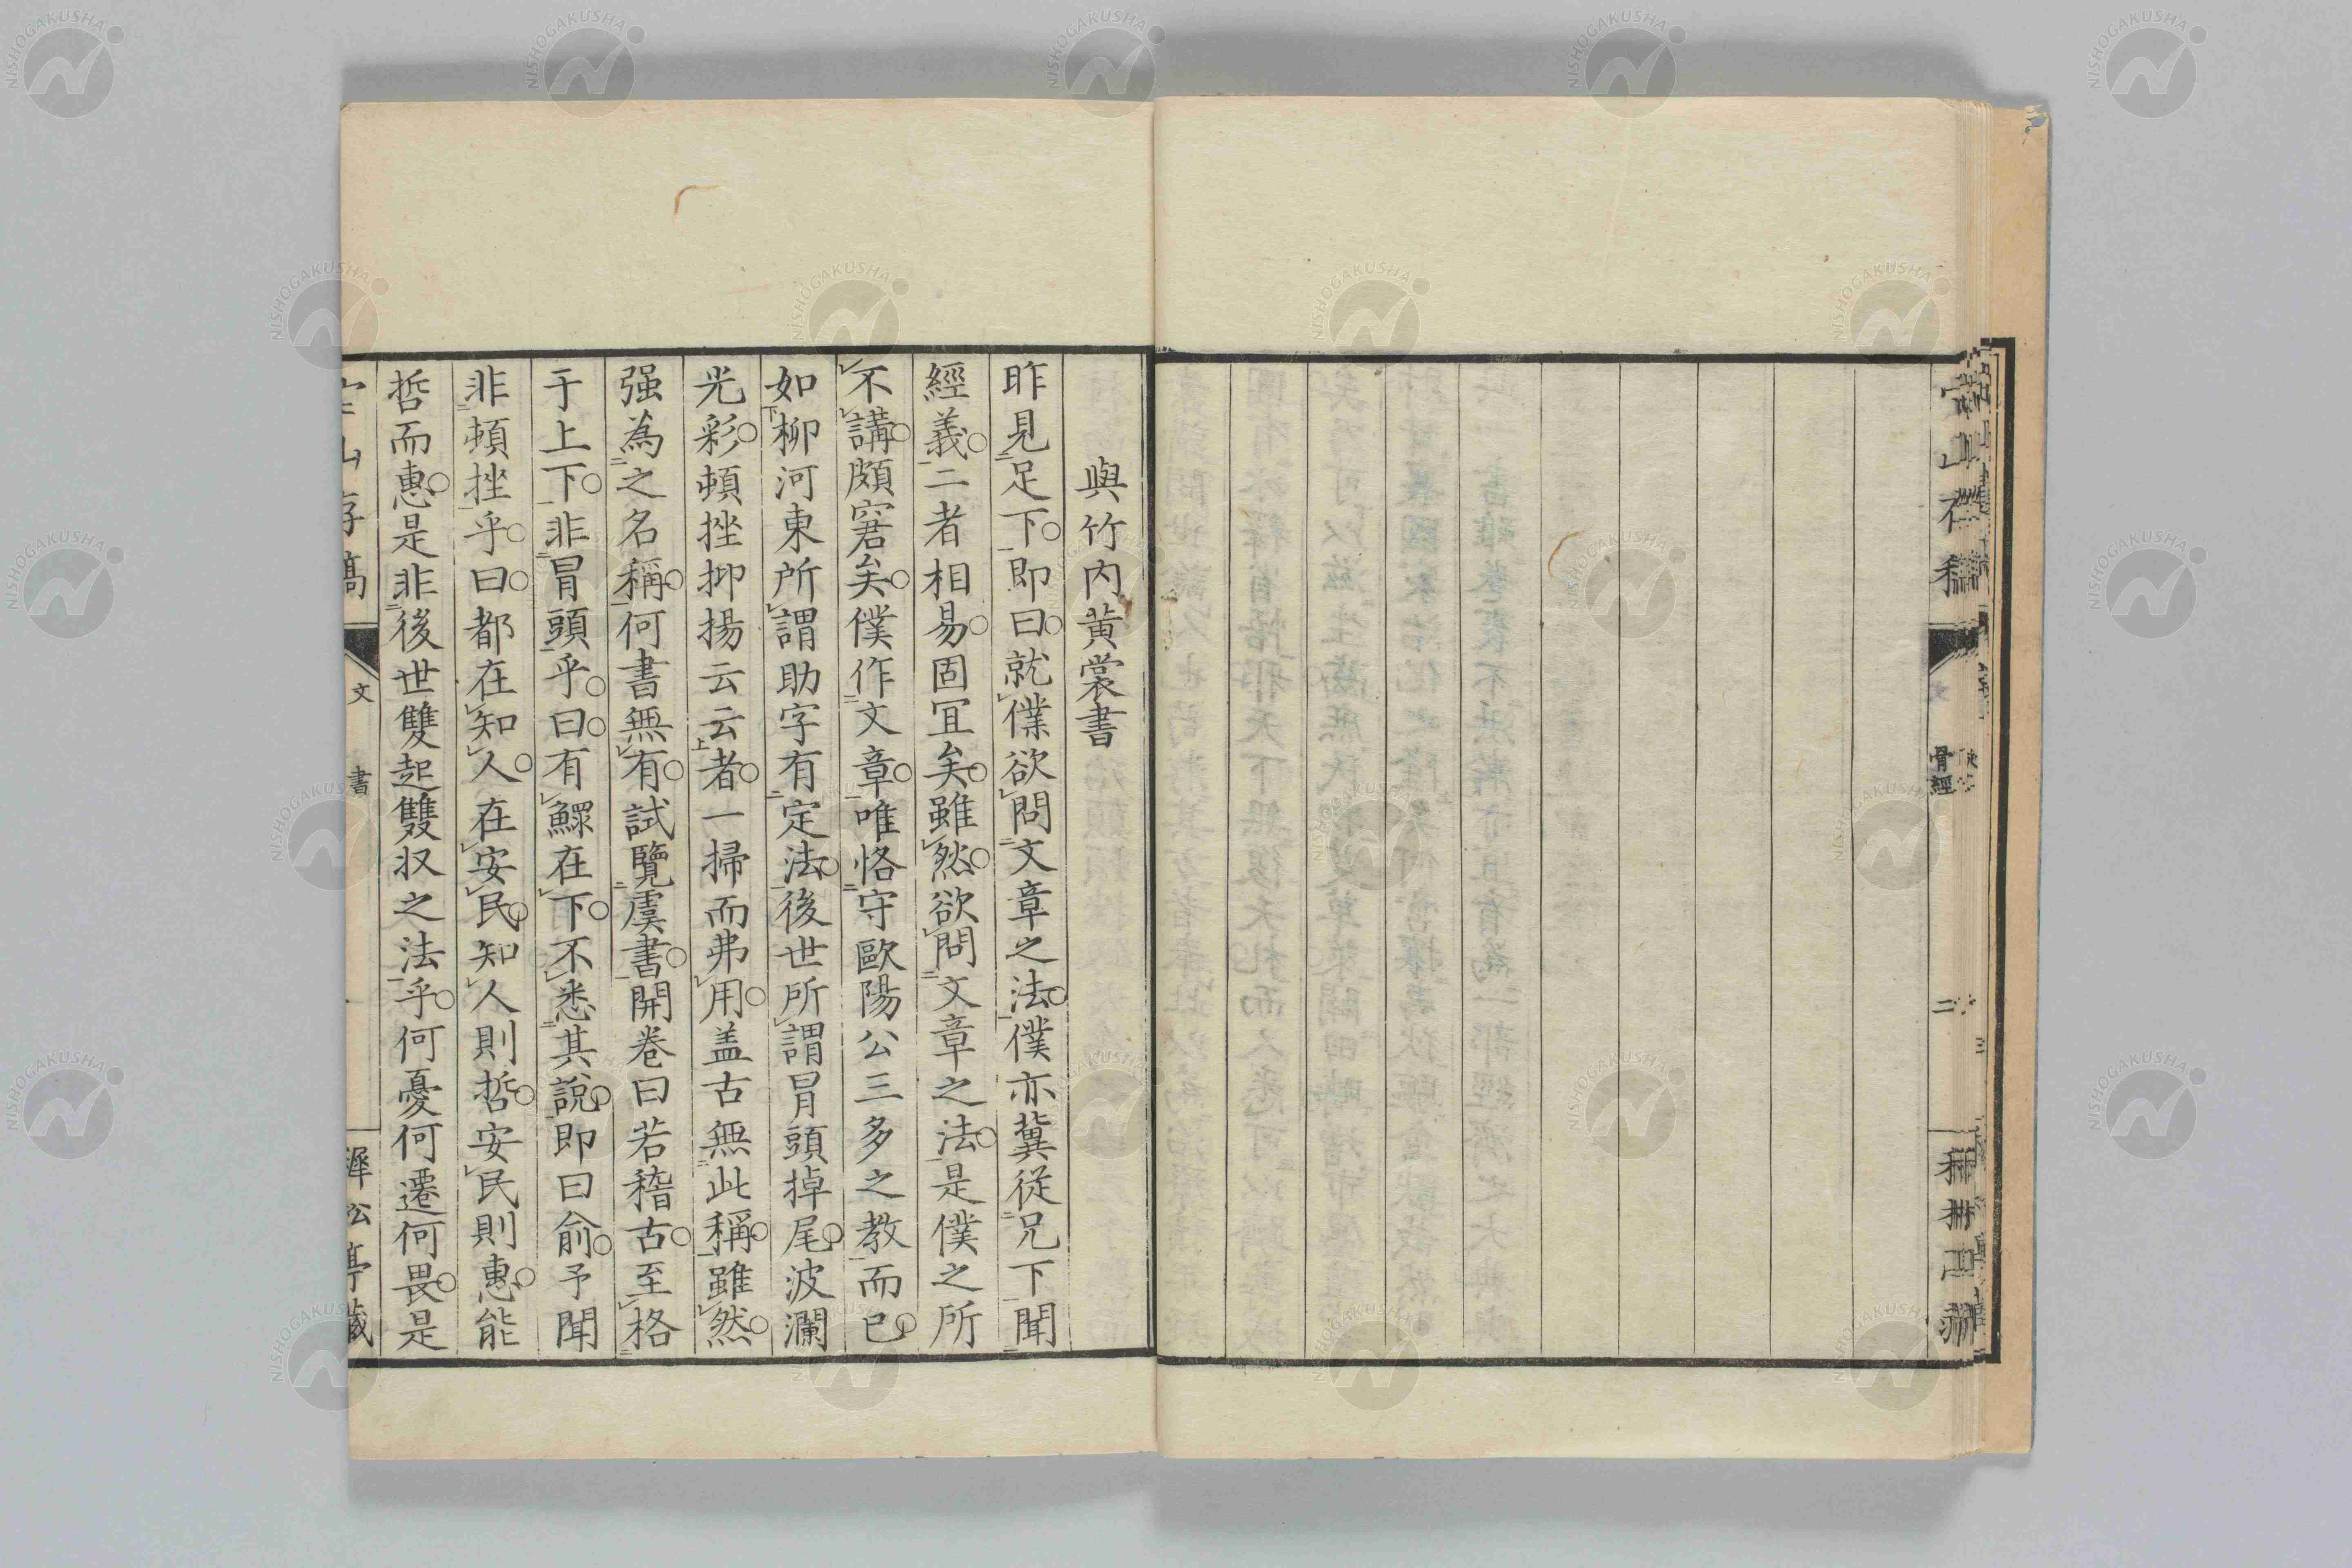 與竹内黄裳書
昨見足下即曰就僕欲問文章之法僕亦冀從兄下聞
經義二者相易固宜矣雖然欲問文章之法是僕之所
不講頗窘矣僕作文章唯恪守歐陽公三多之教而已
如柳河東所謂助字有定法後世所謂冒頭掉尾波瀾
光彩頓挫抑揚云云者一掃而弗用盖古無此稱雖然
强為之名稱何書無有試覽虞書開卷曰若稽古至格
于上下非冒頭乎曰有鰥在下不悉其說即曰俞予聞
非頓挫乎曰都在知人在安民知人則哲安民則惠能
哲而惠是非後世雙起雙収之法乎何憂何遷何畏是
文
書
骨經
二
NISHOGAKUSHA